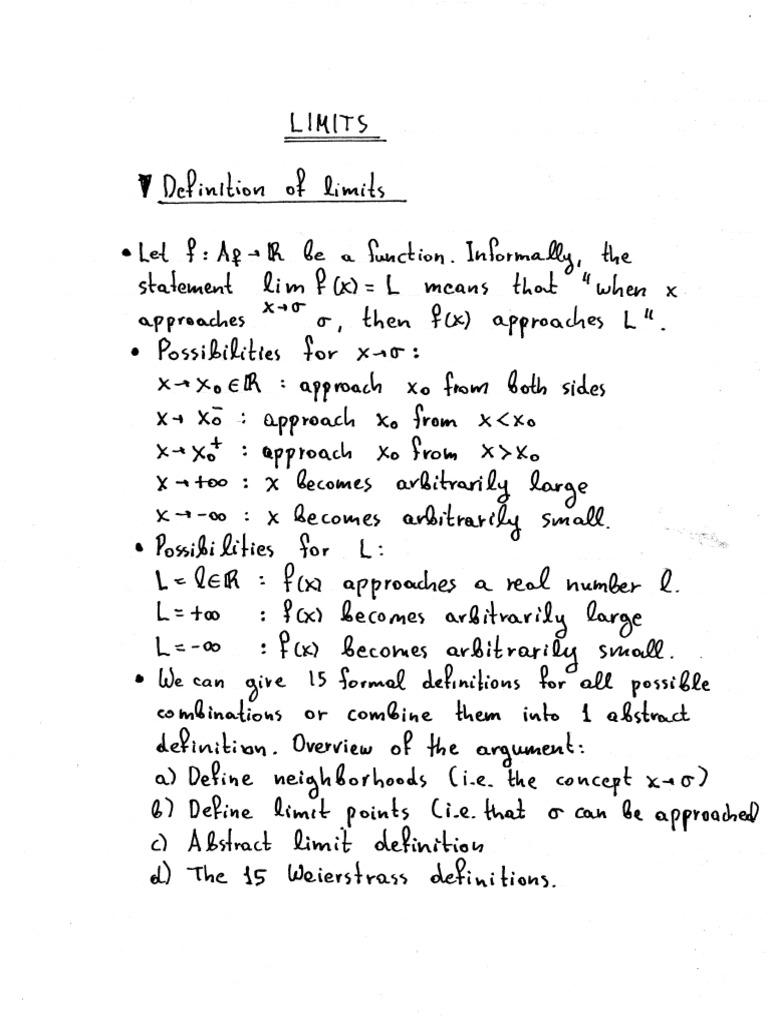 LIMITS
▼ Definition of limits
• Let f: A_f → ℝ be a function. Informally, the
statement lim f(x) = L means that "when x
approaches x→σ σ, then f(x) approaches L".
• Possibilities for x→σ:
x→x₀∈ℝ : approach x₀ from both sides
x→x₀⁻ : approach x₀ from x<x₀
x→x₀⁺ : approach x₀ from x>x₀
x→+∞ : x becomes arbitrarily large
x→-∞ : x becomes arbitrarily small.
• Possibilities for L:
L=l∈ℝ : f(x) approaches a real number l.
L=+∞ : f(x) becomes arbitrarily large
L=-∞ : f(x) becomes arbitrarily small.
• We can give 15 formal definitions for all possible
combinations or combine them into 1 abstract
definition. Overview of the argument:
a) Define neighborhoods (i.e. the concept x→σ)
b) Define limit points (i.e. that σ can be approached)
c) Abstract limit definition
d) The 15 Weierstrass definitions.